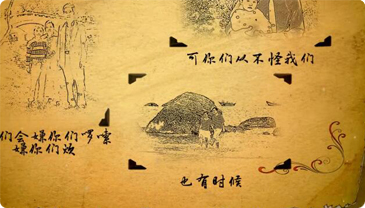 可你们从不怪我们
们会嫌你们啰嗦
嫌你们烦
也有时候